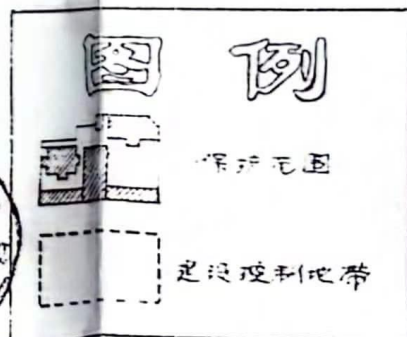 图例
保护范围
建设控制地带